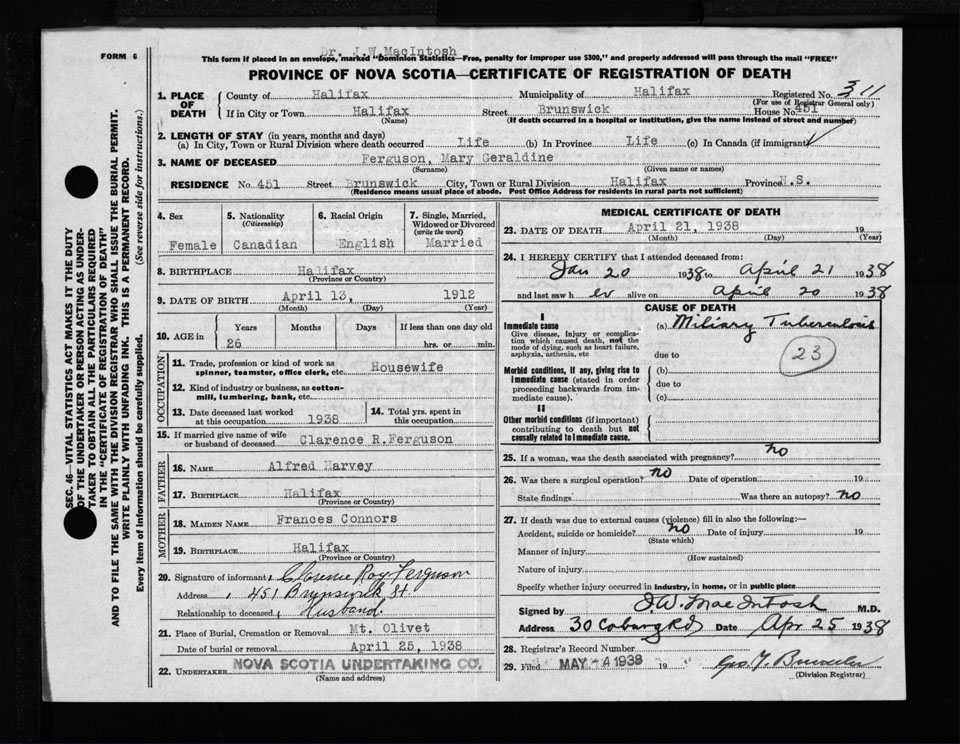 FORM 6
Dr. J.W.MacIntosh
This form if placed in an envelope, marked "Dominion Statistics—Free, penalty for improper use $300," and properly addressed will pass through the mail "FREE"
PROVINCE OF NOVA SCOTIA—CERTIFICATE OF REGISTRATION OF DEATH
1. PLACE OF DEATH
County of Halifax Municipality of Halifax Registered No. 311
(For use of Registrar General only)
If in City or Town Halifax Street Brunswick House No. 451
(Name) (If death occurred in a hospital or institution, give the name instead of street and number)
2. LENGTH OF STAY (in years, months and days)
(a) In City, Town or Rural Division where death occurred Life (b) In Province Life (c) In Canada (if immigrant)
3. NAME OF DECEASED Ferguson, Mary Geraldine
(Surname) (Given name or names)
RESIDENCE No. 451 Street Brunswick City, Town or Rural Division Halifax Province N.S.
(Residence means usual place of abode. Post Office Address for residents in rural parts not sufficient)
SEC. 46—VITAL STATISTICS ACT MAKES IT THE DUTY
OF THE UNDERTAKER OR PERSON ACTING AS UNDER-
TAKER TO OBTAIN ALL THE PARTICULARS REQUIRED
IN THE "CERTIFICATE OF REGISTRATION OF DEATH"
AND TO FILE THE SAME WITH THE DIVISION REGISTRAR WHO SHALL ISSUE THE BURIAL PERMIT.
WRITE PLAINLY WITH UNFADING INK. THIS IS A PERMANENT RECORD.
Every item of information should be carefully supplied. (See reverse side for instructions.)
4. Sex
Female
5. Nationality
(Citizenship)
Canadian
6. Racial Origin
English
7. Single, Married,
Widowed or Divorced
(write the word)
Married
8. BIRTHPLACE Halifax
(Province or Country)
9. DATE OF BIRTH April 13, 1912
(Month) (Day) (Year)
10. AGE in Years Months Days If less than one day old
26 hrs. or min.
OCCUPATION
11. Trade, profession or kind of work as
spinner, teamster, office clerk, etc. Housewife
12. Kind of industry or business, as cotton-
mill, lumbering, bank, etc.
13. Date deceased last worked
at this occupation 1938
14. Total yrs. spent in
this occupation
15. If married give name of wife
or husband of deceased Clarence R.Ferguson
FATHER
16. NAME Alfred Harvey
17. BIRTHPLACE Halifax
(Province or Country)
MOTHER
18. MAIDEN NAME Frances Connors
19. BIRTHPLACE Halifax
(Province or Country)
20. Signature of informant Clarence Roy Ferguson
Address 451 Brunswick St.
Relationship to deceased Husband.
21. Place of Burial, Cremation or Removal Mt. Olivet
Date of burial or removal April 25, 1938
22. UNDERTAKER NOVA SCOTIA UNDERTAKING CO.
(Name and address)
MEDICAL CERTIFICATE OF DEATH
23. DATE OF DEATH April 21, 1938 19
(Month) (Day) (Year)
24. I HEREBY CERTIFY that I attended deceased from:
Jan 20 1938 to April 21 1938
and last saw h er alive on April 20 1938
CAUSE OF DEATH
I
Immediate cause
Give disease, injury or complica-
tion which caused death, not the
mode of dying, such as heart failure,
asphyxia, asthenia, etc
(a) Miliary Tuberculosis
due to
23
Morbid conditions, if any, giving rise to
immediate cause (stated in order
proceeding backwards from im-
mediate cause).
(b)
due to
(c)
II
Other morbid conditions (if important)
contributing to death but not
causally related to immediate cause.
25. If a woman, was the death associated with pregnancy? no
26. Was there a surgical operation? no Date of operation 19
State findings Was there an autopsy? no
27. If death was due to external causes (violence) fill in also the following:—
Accident, suicide or homicide? no Date of injury 19
(State which)
Manner of injury
(How sustained)
Nature of injury
Specify whether injury occurred in industry, in home, or in public place
Signed by J.W. MacIntosh M.D.
Address 30 Coburg Rd Date Apr 25 1938
28. Registrar's Record Number
29. Filed MAY -4 1938 19
(Division Registrar)